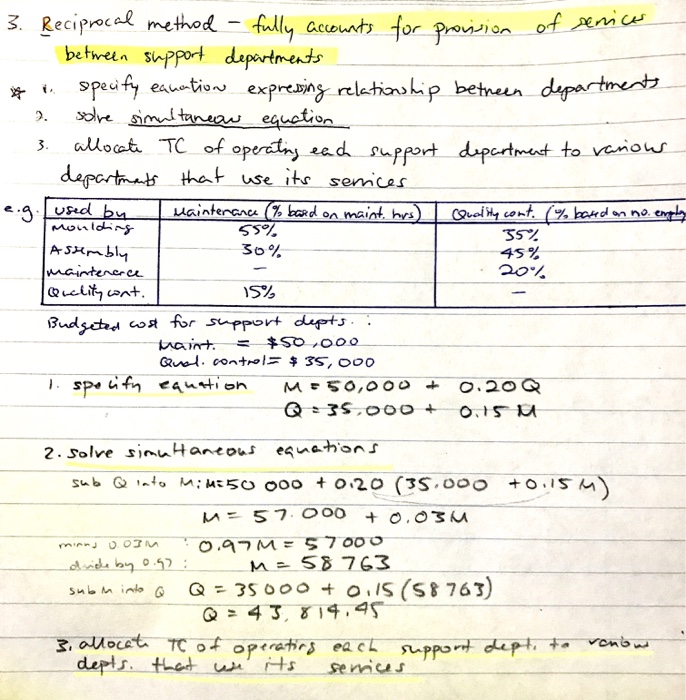 3. Reciprocal method - fully accounts for provision of services
between support departments
* 1. specify equation expressing relationship between departments
2. solve simultaneous equation
3. allocate TC of operating each support department to various
departments that use its services
e.g. used by Maintenance (% based on maint. hrs) Quality cont. (% based on no. employ
Moulding 55% 35%
Assembly 30% 45%
Maintenance - 20%
Quality cont. 15% -
Budgeted cost for support depts. :
Maint. = $50,000
Qual. control = $35,000
1. specify equation M = 50,000 + 0.20Q
Q = 35.000 + 0.15 M
2. solve simultaneous equations
sub Q into M: M=50 000 + 0.20 (35.000 + 0.15 M)
M = 57.000 + 0.03M
minus 0.03M : 0.97M = 57000
divide by 0.97 : M = 58 763
sub M into Q Q = 35000 + 0.15 (58763)
Q = 43,814.45
3. allocate TC of operating each support dept. to various
depts. that use its services